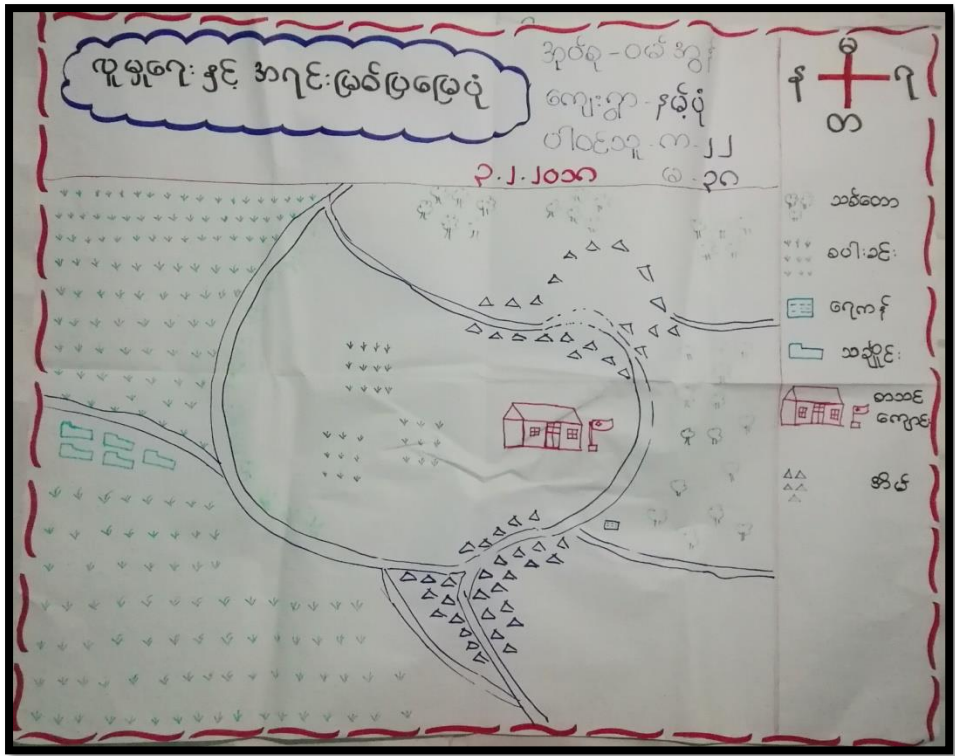 လူမှုရေး နှင့် အရင်းမြစ်ပြမြေပုံ
အုပ်စု - ဝမ်အွန်
ကျေးရွာ - နမ့်ပုံ
ပါဝင်သူ - က - ၂၂
မ - ၃၈
၃.၂.၂၀၁၈
မ
န
ရ
တ
သစ်တော
စပါးခင်း
ရေကန်
သင်္ချိုင်း
စာသင်
ကျောင်း
အိမ်